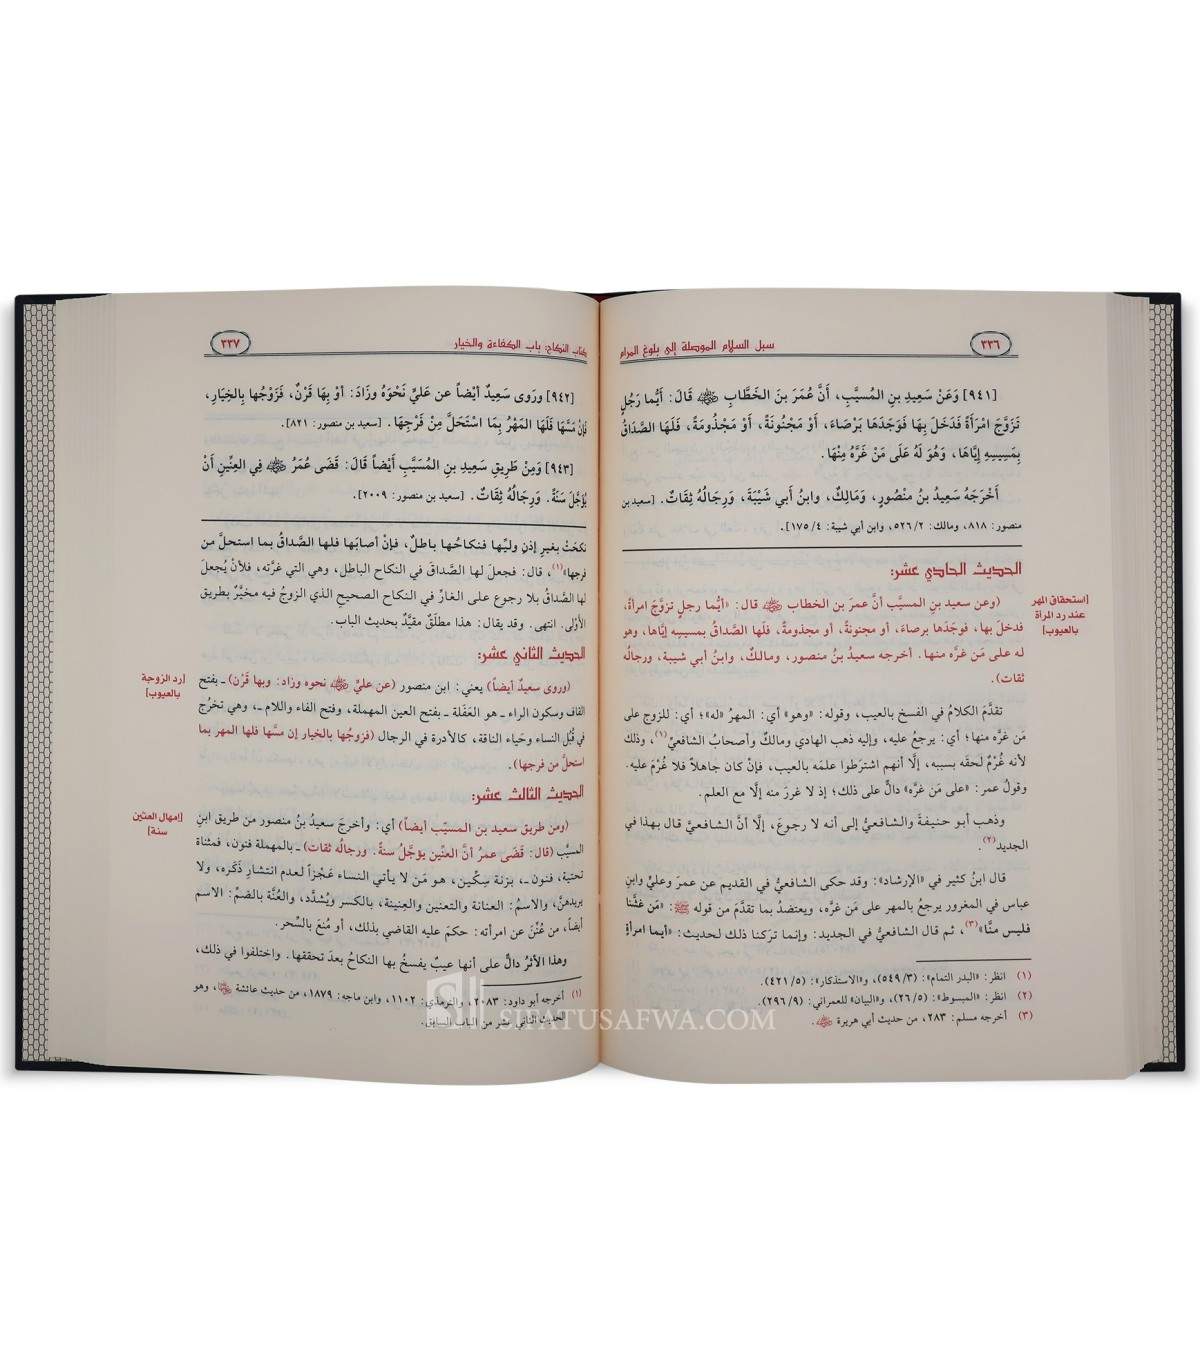 ٣٣٦
سبل السلام الموصلة إلى بلوغ المرام
[٩٤١] وَعَنْ سَعِيدِ بنِ المُسيَّبِ، أَنَّ عُمَرَ بنَ الخَطَّابِ ﵁ قَالَ: أَيُّما رَجُلٍ
تَزَوَّجَ امْرَأَةً فَدَخَلَ بِهَا فَوَجَدَهَا بَرْصَاءَ، أَوْ مَجْنُونَةً، أَوْ مَجْذُومَةً، فَلَهَا الصَّدَاقُ
بِمَسِيسِهِ إِيَّاهَا، وَهُوَ لَهُ عَلَى مَنْ غَرَّهُ مِنْهَا.
أَخْرَجَهُ سَعِيدُ بنُ منْصُورٍ، وَمَالِكٌ، وابنُ أَبي شَيْبَةَ، وَرِجَالُهُ ثِقَاتٌ. [سعيد بن
منصور: ٨١٨، ومالك: ٢/ ٥٢٦، وابن أبي شيبة: ٤/ ١٧٥].
الحديث الحادي عشر:
[استحقاق المهر
عند رد المرأة
بالعيوب]
(وعن سعيد بنِ المسيَّب أنَّ عمرَ بن الخطاب ﵁ قال: «أيُّما رجلٍ تزوَّجَ امرأةً،
فدخل بها، فوجَدَها برصاءَ، أو مجنونةً، أو مجذومةً، فلَها الصَّداقُ بمسيسِه إيَّاها، وهو
له على مَن غرَّه منها. أخرجه سعيدُ بنُ منصور، ومالكٌ، وابنُ أبي شيبة، ورجالُه
ثقات).
تقدَّمَ الكلامُ في الفسخ بالعيب، وقوله: «وهو» أي: المهرُ «له»؛ أي: للزوج على
مَن غرَّه منها؛ أي: يرجعُ عليه، وإليه ذهب الهادي ومالكٌ وأصحابُ الشافعيِّ(١)، وذلك
لأنه غُرْمٌ لَحقَه بسببه، إلَّا أنهم اشترَطوا علمَه بالعيب، فإنْ كان جاهلاً فلا غُرْمَ عليه.
وقولُ عمر: «على مَن غرَّه» دالٌّ على ذلك؛ إذ لا غررَ منه إلَّا مع العلم.
وذهب أبو حنيفةَ والشافعيُّ إلى أنه لا رجوعَ، إلَّا أنَّ الشافعيَّ قال بهذا في
الجديد(٢).
قال ابنُ كثير في «الإرشاد»: وقد حكى الشافعيُّ في القديم عن عمرَ وعليٍّ وابنِ
عباس في المغرور يرجعُ بالمهر على مَن غرَّه، ويعتضدُ بما تقدَّمَ من قوله ﷺ: «مَن غشَّنا
فليس منَّا»(٣)، ثم قال الشافعيُّ في الجديد: وإنما تركنا ذلك لحديث: «أيما امرأةٍ
(١) انظر: «البدر التمام»: (٣/ ٥٤٩)، و«الاستذكار»: (٥/ ٤٢١).
(٢) انظر: «المبسوط»: (٥/ ٢٦)، و«البيان» للعمراني: (٩/ ٢٩٦).
(٣) أخرجه مسلم: ٢٨٣، من حديث أبي هريرة ﵁.
كتاب النكاح: باب الكفاءة والخيار
٣٣٧
[٩٤٢] ورَوى سَعِيدٌ أيْضاً عن عَليٍّ نَحْوَهُ وزَادَ: أوْ بِهَا قَرْنٌ، فَزَوْجُها بِالخِيَارِ،
فَإِنْ مَسَّهَا فَلَهَا المَهْرُ بِمَا اسْتَحَلَّ مِنْ فَرْجِهَا. [سعيد بن منصور: ٨٢١].
[٩٤٣] وَمِنْ طَرِيقِ سَعِيدِ بنِ المُسَيَّبِ أَيْضاً قَالَ: قَضَى عُمَرُ ﵁ فِي العِنِّينِ أَنْ
يُؤَجَّلَ سَنَةً. وَرِجَالُهُ ثِقَاتٌ. [سعيد بن منصور: ٢٠٠٩].
نكحَتْ بغيرِ إذنِ وليِّها فنكاحُها باطلٌ، فإنْ أصابَها فلها الصَّداقُ بما استحلَّ من
فرجها»(١)، قال: فجعلَ لها الصَّداقَ في النكاح الباطل، وهي التي غرَّته، فلأنْ يُجعلَ
لها الصَّداقُ بلا رجوع على الغارِّ في النكاح الصحيح الذي الزوجُ فيه مخيَّرٌ بطريق
الأَوْلى. انتهى. وقد يقال: هذا مطلَقٌ مقيَّدٌ بحديث الباب.
الحديث الثاني عشر:
[رد الزوجة
بالعيوب]
(وروى سعيدٌ أيضاً) يعني: ابن منصور (عن عليٍّ ﵁ نحوه وزاد: وبها قَرْن) ـ بفتح
القاف وسكون الراء ـ هو العَفَلة ـ بفتح العين المهملة، وفتح الفاء واللام ـ، وهي تخرُج
في قُبُل النساء وحَياء الناقة، كالأدرة في الرجال (فزوجُها بالخيار إن مسَّها فلها المهر بما
استحلَّ من فرجها).
الحديث الثالث عشر:
[إمهال العنين
سنة]
(ومن طريق سعيد بن المسيّب أيضاً) أي: وأخرجَ سعيدُ بنُ منصور من طريق ابنِ
المسيَّب (قال: قَضَى عمرُ أنَّ العنِّين يوجَّلُ سنةً. ورجالُه ثقات) ـ بالمهملة فنون، فمثناة
تحتية، فنون ـ، بزنة سِكِّين، هو مَن لا يأتي النساء عَجْزاً لعدم انتشارِ ذَكَره، ولا
يريدهنَّ، والاسمُ: العنانة والتعنين والعِنينة، بالكسر ويُشدَّد، والعُنَّة بالضمِّ: الاسم
أيضاً، من عُنِّنَ عن امرأته: حكمَ عليه القاضي بذلك، أو مُنعَ بالسِّحر.
وهذا الأثرُ دالٌّ على أنها عيبٌ يفسخُ بها النكاحُ بعدَ تحققها. واختلفوا في ذلك،
(١) أخرجه أبو داود: ٢٠٨٣، والترمذي: ١١٠٢، وابن ماجه: ١٨٧٩، من حديث عائشة ﵂، وهو
الحديث الثاني عشر من الباب السابق.
SIFATUSAFWA.COM